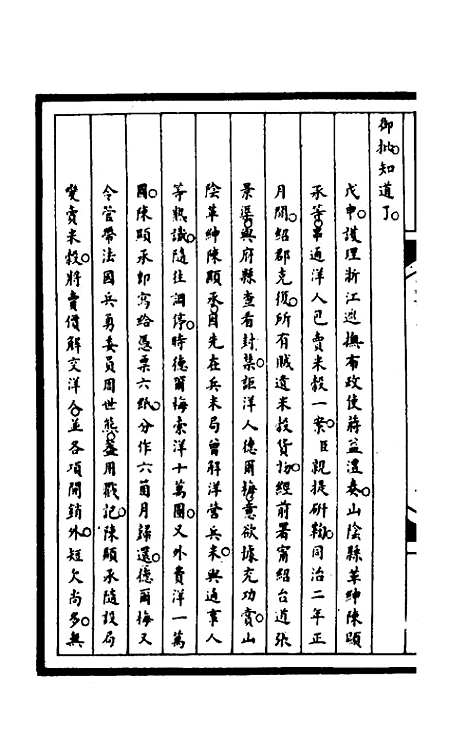 御批知道了
戊申護理浙江巡撫布政使蔣益澧奏山陰縣革紳陳顯
承等串通洋人已賣米穀一案臣親提研鞫同治二年正
月間紹郡克復所有賊遺米穀貨物經前署甯紹台道張
景渠與府縣查看封禁詎洋人德爾梅意欲據充功賞山
陰革紳陳顯承因先在兵米局曾解洋營兵米與通事人
等熟識隨往調停時德爾梅索洋十萬圓又外費洋一萬
圓陳顯承即寫給憑票六紙分作六箇月歸還德爾梅又
令管帶法國兵勇委員周世熊蓋用戳記陳顯承隨設局
變賣米穀將賣價解交洋人並各項開銷外短欠尚多無